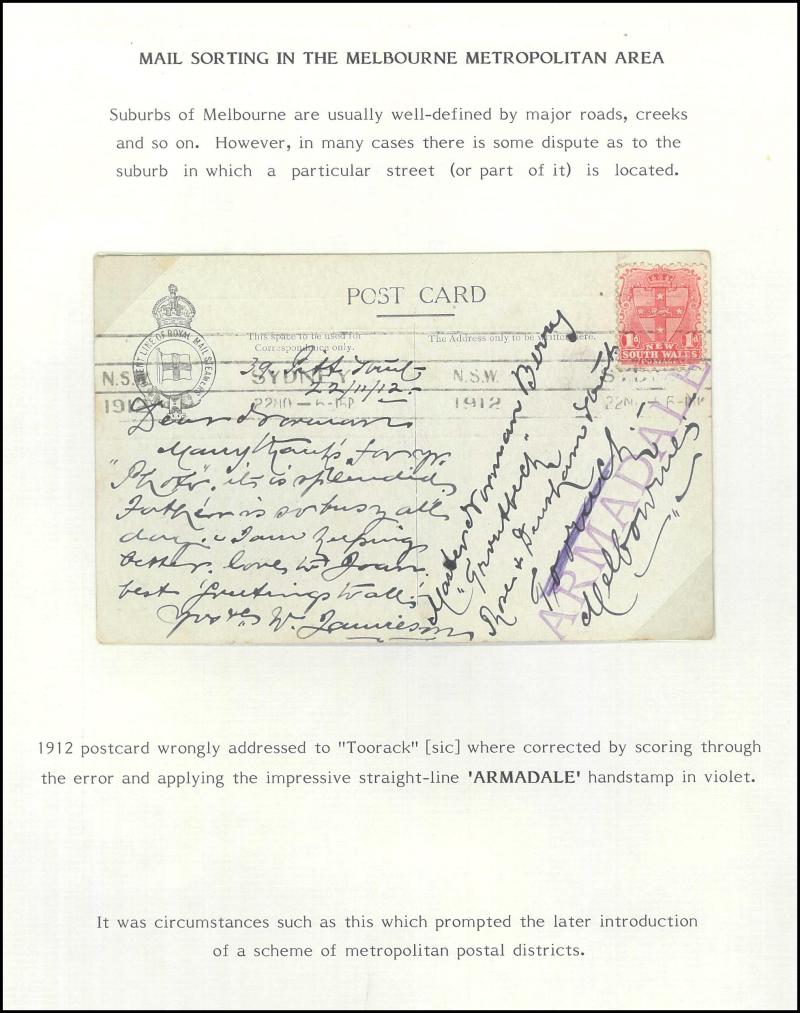 MAIL SORTING IN THE MELBOURNE METROPOLITAN AREA
Suburbs of Melbourne are usually well-defined by major roads, creeks
and so on. However, in many cases there is some dispute as to the
suburb in which a particular street (or part of it) is located.
POST CARD
This space to be used for
Correspondence only.
The Address only to be written here.
1d 1d
NEW
SOUTH WALES
LINE OF ROYAL MAIL STEAMERS
N.S.W.
SYDNEY
N.S.W.
1912
39 Pitt
22/11/12
Dear Norman
Many thanks for yr
"Photo". it is splendid
Father is so busy all
day. I am keeping
better. love to Joan
best greetings to all
W. Jamieson
Master Norman Berry
"Troutbeck"
Rose &
Toorack
Melbourne
ARMADALE
1912 postcard wrongly addressed to "Toorack" [sic] where corrected by scoring through
the error and applying the impressive straight-line 'ARMADALE' handstamp in violet.
It was circumstances such as this which prompted the later introduction
of a scheme of metropolitan postal districts.